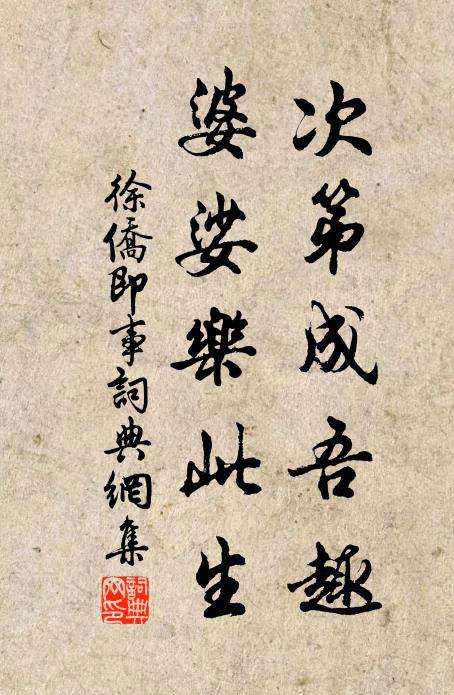 次第成吾趣
婆娑樂此生
徐僑即事詞典網集